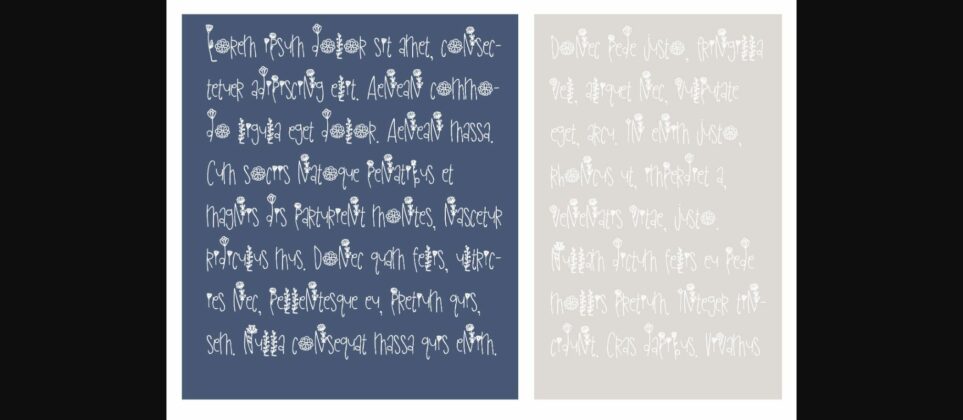 Lorem ipsum dolor sit amet, consec-
tetuer adipiscing elit. Aenean commo-
do ligula eget dolor. Aenean massa.
Cum sociis natoque penatibus et
magnis dis parturient montes, nascetur
ridiculus mus. Donec quam felis, ultric-
ies nec, pellentesque eu, pretium quis,
sem. Nulla consequat massa quis enim.
Donec pede justo, fringilla
vel, aliquet nec, vulputate
eget, arcu. In enim justo,
rhoncus ut, imperdiet a,
venenatis vitae, justo.
Nullam dictum felis eu pede
mollis pretium. Integer tin-
cidunt. Cras dapibus. Vivamus